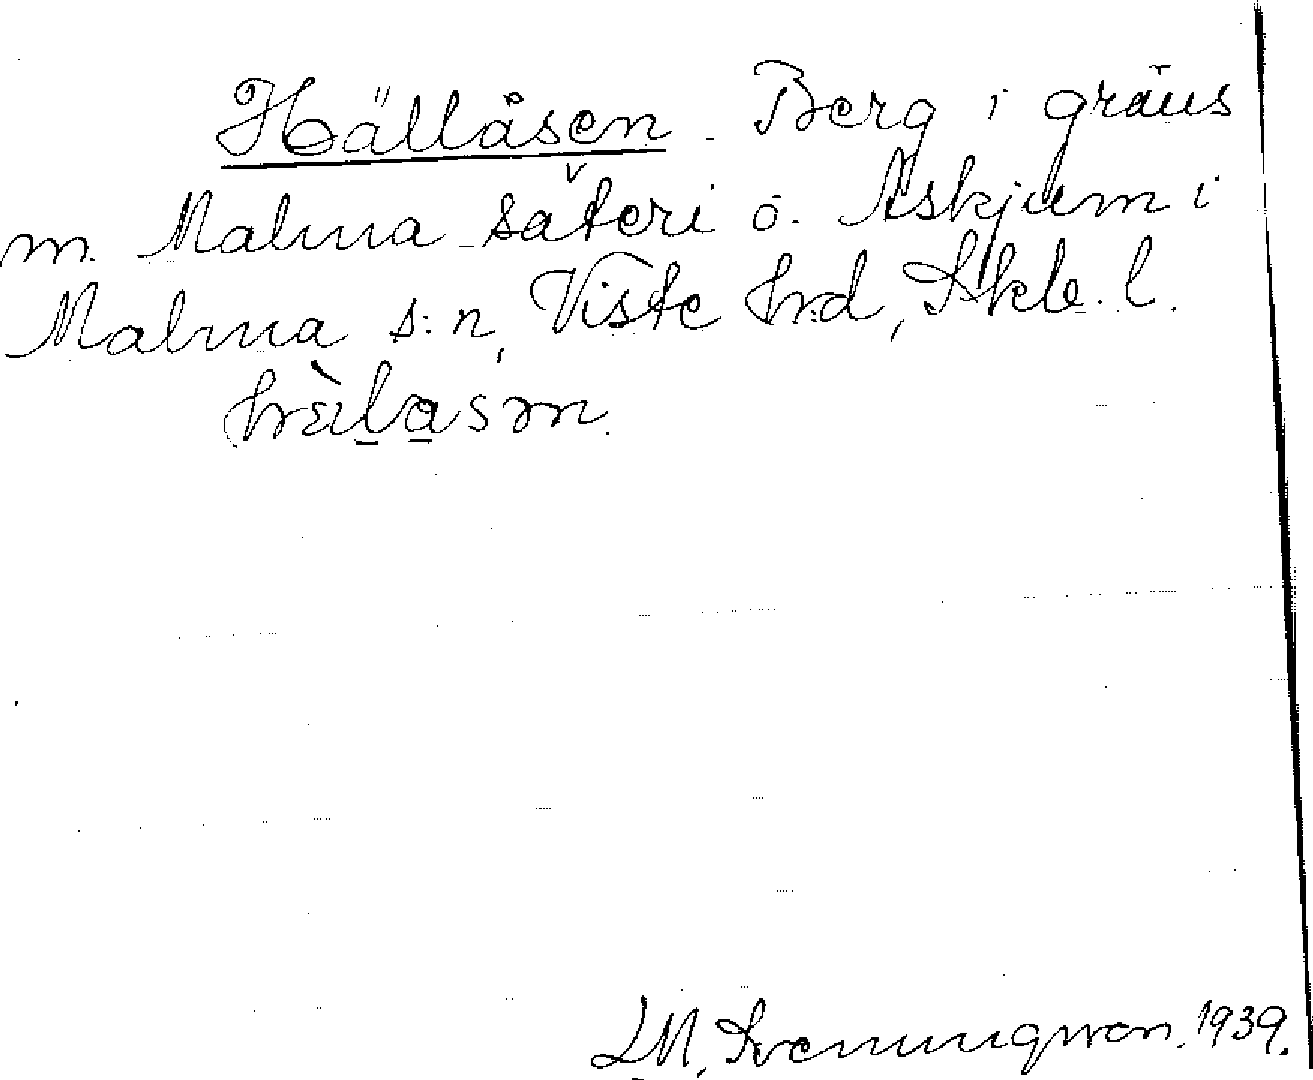 Hällåsen. Berg i gräns
m. Malma säteri o. Askjum i
Malma s:n, Viste hrd, Skb. l.
L M. Svenungsson. 1939.